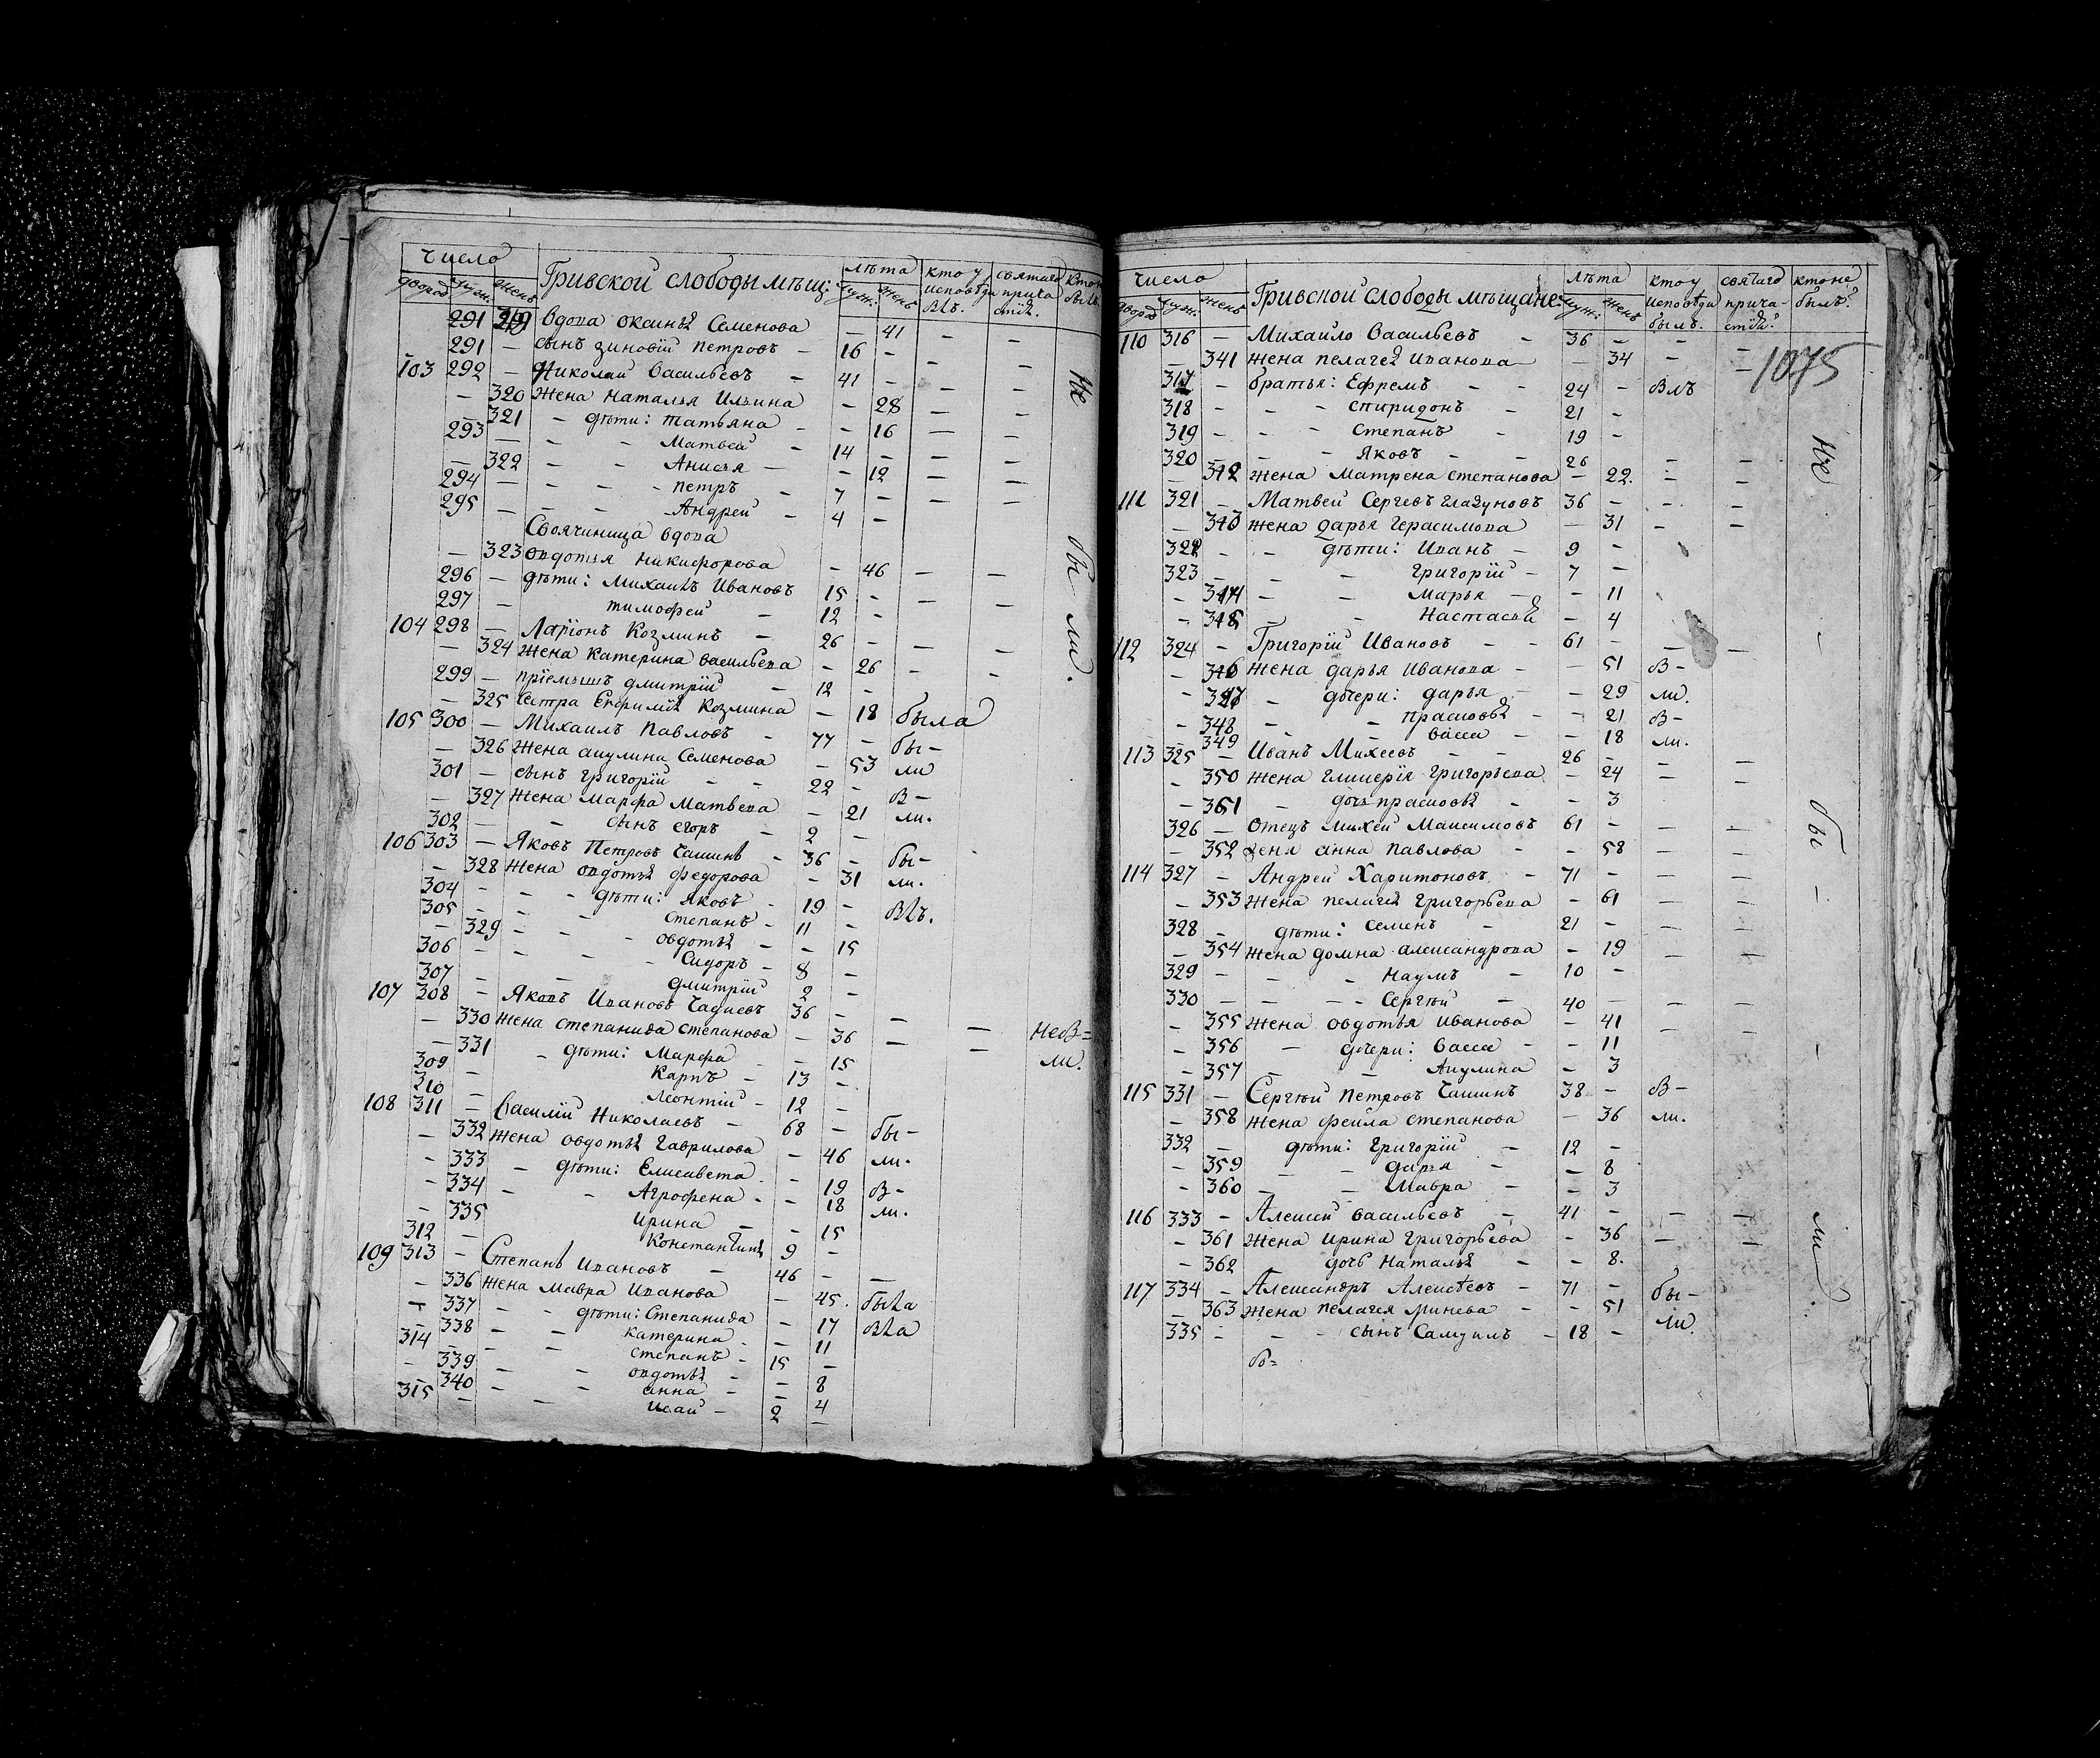 Число Гривской слободы мѣщ: лѣта кто у исповѣди былъ. святаго прича стїя. Кто не былъ
дворов муж: женъ муж: женъ
291 319 вдова Оксинья Семенова — 41 — —
291 — сынъ Зиновїй Петровъ — 16 —
103 292 — Николай Васильевъ — 41 — — —
— 320 жена Наталья Ильина — 28 — —
— 321 — дѣти: Татьяна — — 16 — —
293 — — — Матвей — 14 — — —
— 322 — — Анисья — — 12 — —
294 — — — Петръ — 7 — — —
295 — — — Андрей — 4 —
Своячиница вдова
— 323 Овдотья Никифорова — 46 — —
296 — дѣти: Михаилъ Ивановъ 15 — — —
297 — Тимофей — 12 —
104 298 — Ларїонъ Козминъ — 26 — — —
— 324 жена Катерина Васильева — 26 — —
299 — прїемышъ Дмитрїй — 12 —
— 325 Сестра Евфимїя Козмина — 18 была
105 300 — Михаилъ Павловъ — 77 — бы-
— 326 жена Акулина Семенова — 53 ли
301 — сынъ Григорїй — — 22 — в-
— 327 жена Марфа Матвева — 21 ли.
302 — — сынъ Егоръ — 2 —
106 303 — Яковъ Петровъ Сашинъ — 36 — бы-
— 328 жена Овдотья Федорова — 31 ли.
304 — — — дѣти: Яковъ — 19 — былъ.
305 — — — Степанъ — 11 —
— 329 — — — Овдотья — — 15
306 — — — Сидоръ — 8 —
307 — — — Дмитрїй 2 —
107 308 — Яковъ Ивановъ Садиевъ 36 — — —
— 330 жена Степанида Степанова — 36 — — не бы=
— 331 — дѣти: Марфа — — 15 ли.
309 — Карпъ — 13 —
310 — Леонтїй — 12 —
108 311 — Василїй Николаевъ — 68 — бы-
— 332 жена Овдотья Гаврилова — 46 ли.
— 333 — дѣти: Елисавета — — 19 в-
— 334 — — Агрофена — — 18 ли.
— 335 Ирина — — 15
312 — Константинъ 9 —
109 313 — Степанъ Ивановъ — 46 — —
— 336 жена Мавра Иванова — 45. была
— 337 — — дѣти: Степанида — 17 была
— 338 — — Катерина — — 11
314 — — Степанъ — 15 —
— 339 — — Овдотья — — 8
— 340 — — Анна — — 4
315 — — Исай — 2 —
не
бы-ли.
Число Гривской слободы мѣщане лѣта кто у исповѣди былъ. святаго прича-стїя? кто не былъ?
дворов муж. женъ муж: женъ
110 316 — Михайло Васильевъ — 36 — — —
1075
— 341 жена Пелагея Иванова — 34 — —
317 — братья: Ефремъ — — 24 — былъ
318 — — — Спиридонъ — 21 —
319 — — — Степанъ — 19 —
320 — — — Яковъ — — 26 — —
— 342 жена Матрена Степанова — 22. — —
111 321 — Матвей Сергевъ Глазуновъ 36 — — —
— 343 жена Дарья Герасимова — 31 — —
322 — — дѣти: Иванъ — 9 —
323 — — — Григорїй — 7 —
— 344 — — Марья — — 11
— 345 — — Настасья — 4
112 324 — Григорїй Ивановъ — — 61 — — —
— 346 жена Дарья Иванова — — 51 в-
— 347 — дочери: Дарья — — 29 ли.
— 348 — — Прасковья — — 21 в-
— 349 — — Васса — — 18 ли.
113 325 — Иванъ Михеевъ — — 26 — — —
— 350 жена Гликерїя Григорьева — 24 — —
— 351 — дочь Прасковья — — 3
326 — Отецъ Михей Максимовъ 61 — — —
— 352 жена Анна Павлова — — 58 — —
114 327 — Андрей Харитоновъ — 71 — — —
— 353 жена Пелагея Григорьева — 61 — —
328 — дѣти: Семенъ — 21 — — —
— 354 жена Домна Александрова — 19 — —
329 — — — Наумъ — 10 —
330 — — — Сергѣй — 40 — — —
— 355 жена Овдотья Иванова — 41 — —
— 356 — дочери: Васса — — 11
— 357 — — Акулина — 3
115 331 — Сергѣй Петровъ Сашинъ 38 — в-
— 358 жена Фекла Степанова — 36 ли.
332 — дѣти: Григорїй — 12 —
— 359 — — Дарья — — 8
— 360 — — Мавра — — 3
116 333 — Алексей Васильевъ — 41 — — —
— 361 жена Ирина Григорьева — 36 — —
— 362 — дочь Наталья — — 8.
117 334 — Александръ Алексѣевъ — 71 — бы-
— 363 жена Пелагея Минева — — 51 ли.
335 — — — сынъ Самуилъ — 18 —
в=
не
—
бы
—
—
ли.